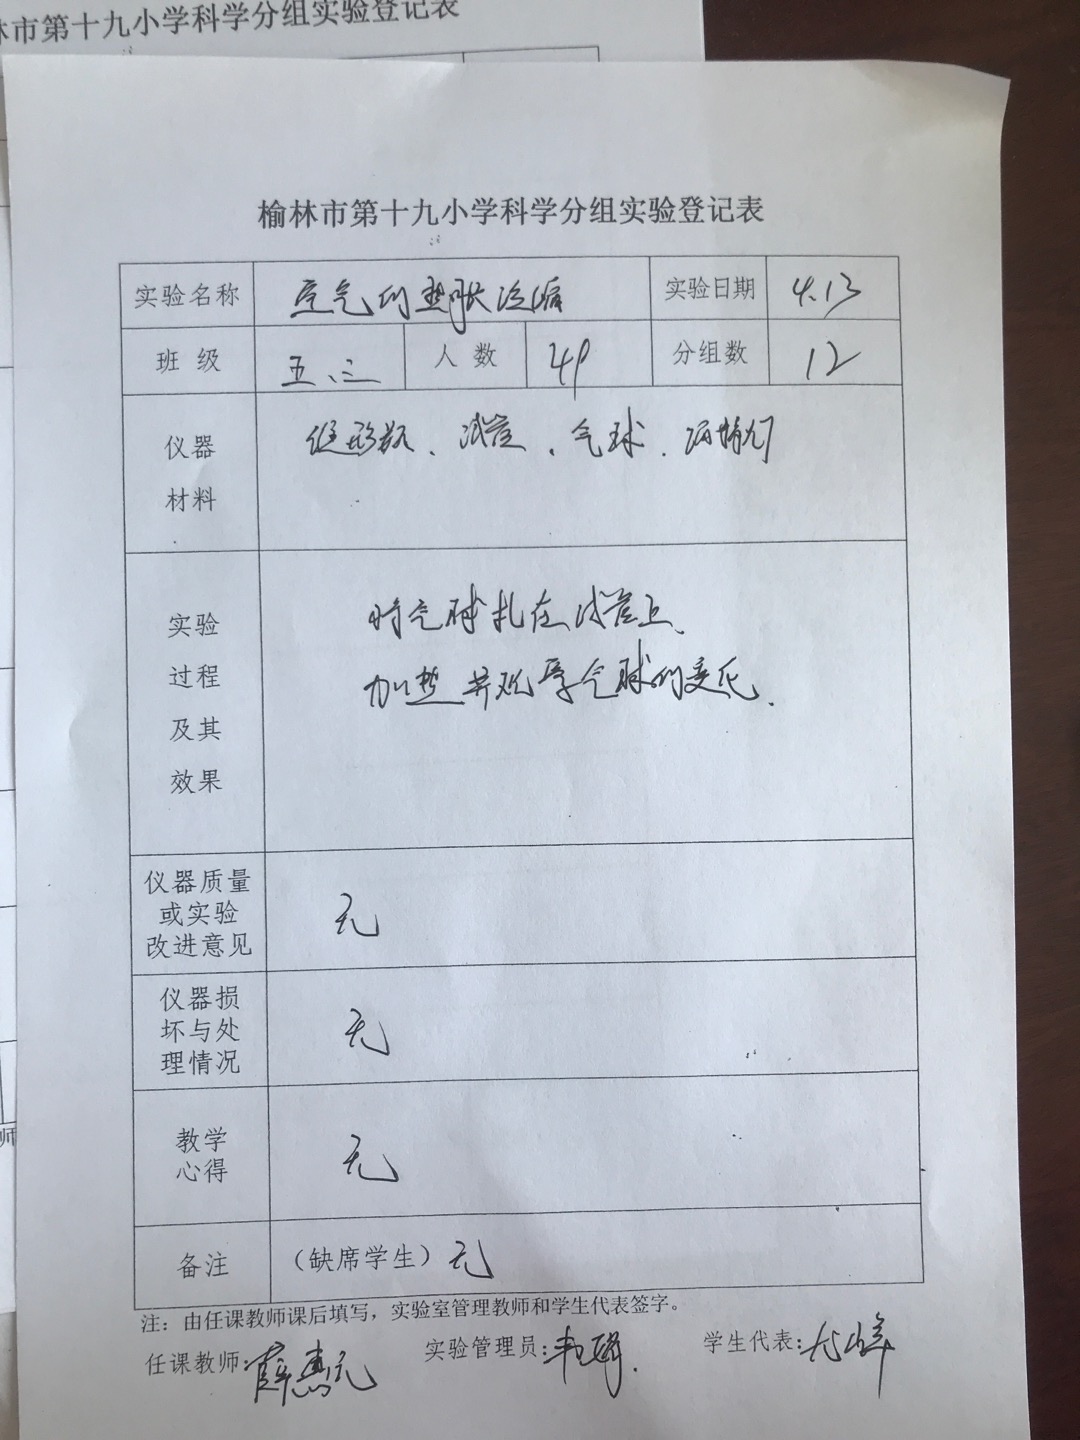 林市第十九小学科学分组实验登记表
榆林市第十九小学科学分组实验登记表
实验名称 空气的热胀冷缩 实验日期 4.13
班 级 五、三 人 数 49 分组数 12
仪器 锥形瓶、试管、气球、酒精灯
材料
实验 将气球扎在试管上、
过程 加热并观察气球的变化.
及其
效果
仪器质量
或实验 无
改进意见
仪器损
坏与处 无
理情况
教学 无
心得
备注 （缺席学生）无
注：由任课教师课后填写，实验室管理教师和学生代表签字。
任课教师: 实验管理员: 学生代表:
师